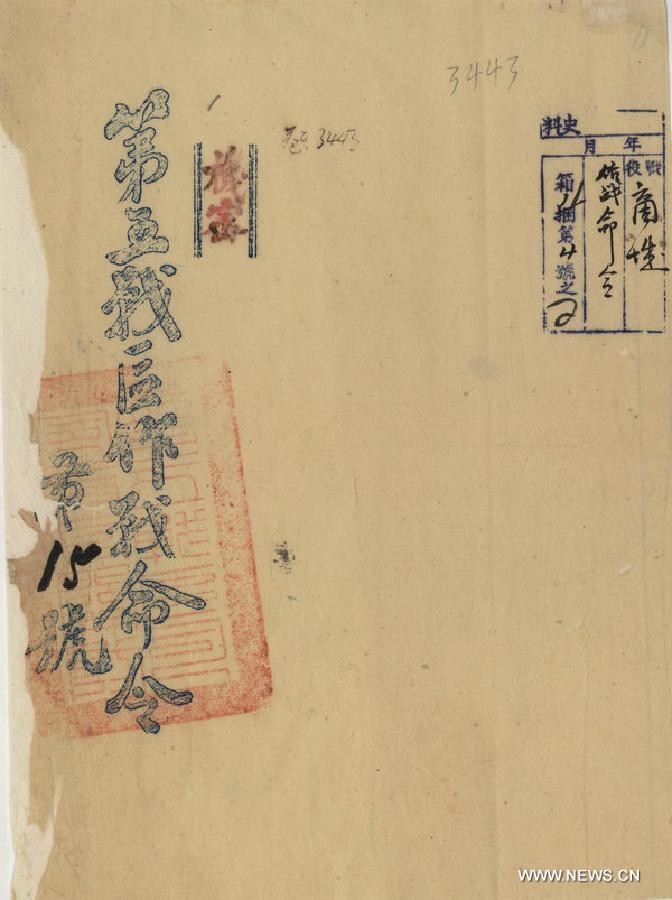 3443
史料
年 月
戰役 商城
作战命令
箱 捆第4號之2
卷3443
機密
第五戰區作戰命令
第15號
WWW.NEWS.CN